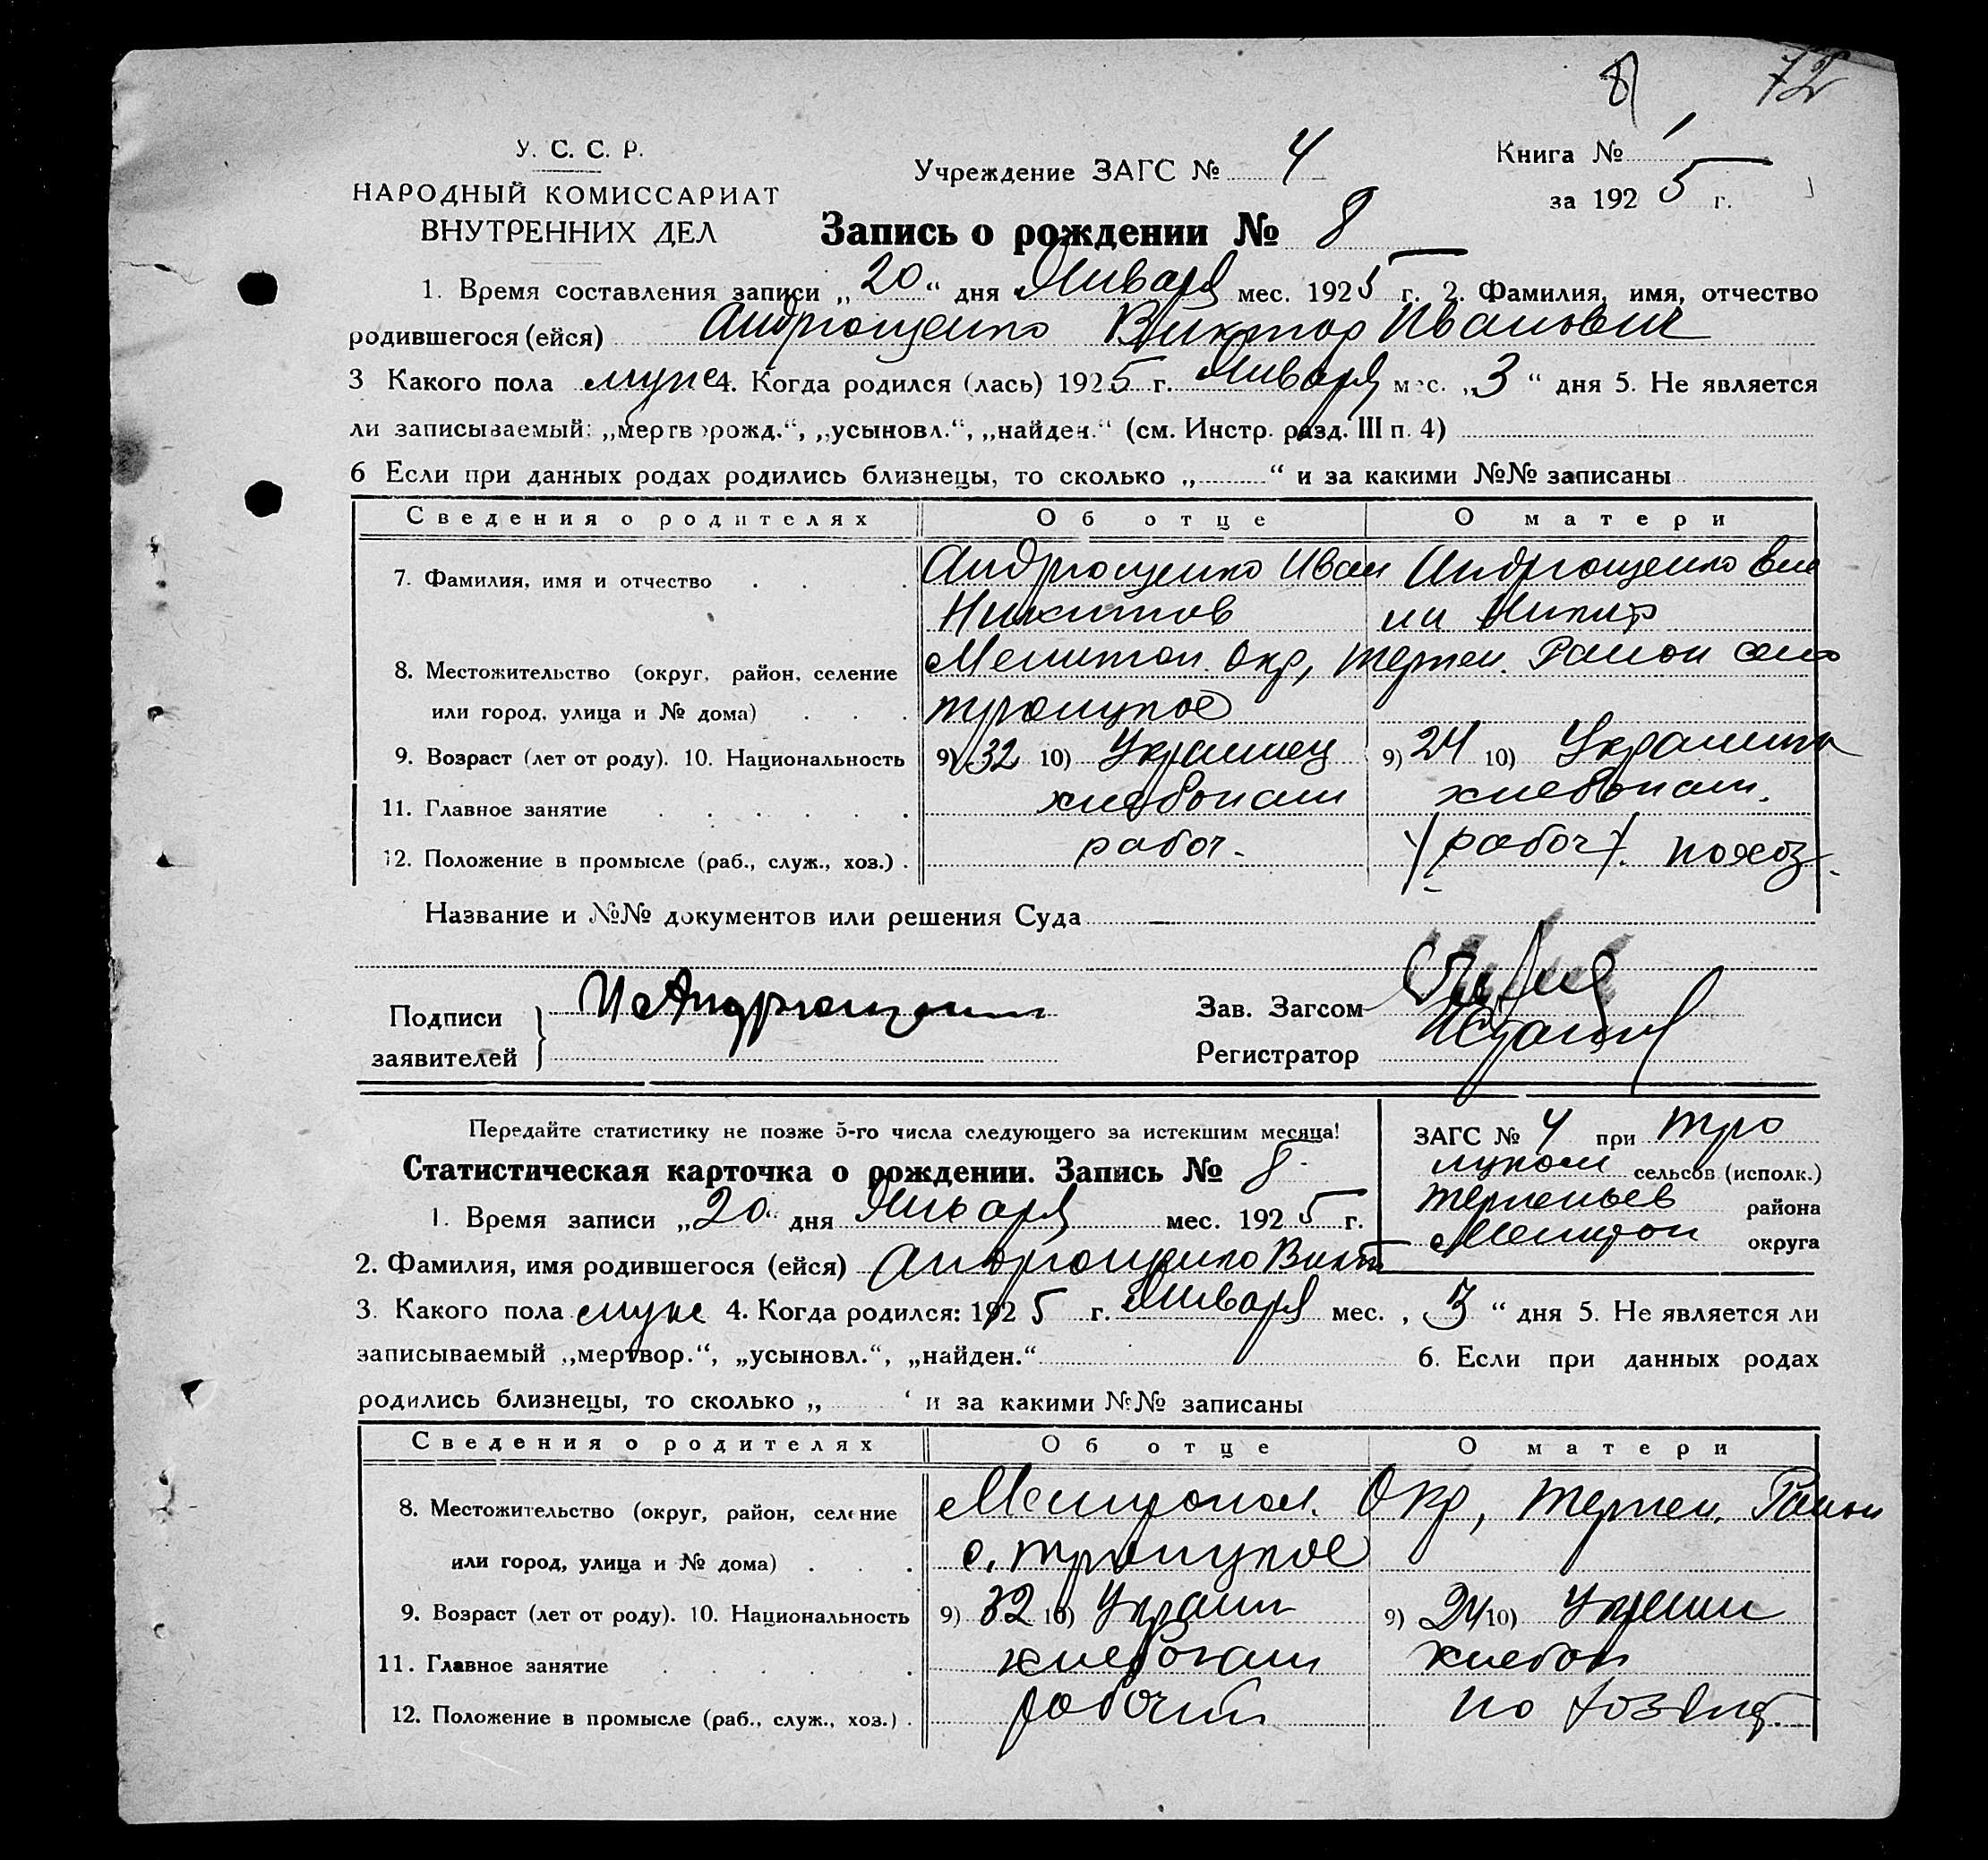 8 72
У. С. С. Р.
НАРОДНЫЙ КОМИССАРИАТ
ВНУТРЕННИХ ДЕЛ
Учреждение ЗАГС № 4
Книга № 1
за 1925 г.
Запись о рождении № 8
1. Время составления записи „20“ дня Января мес. 1925 г. 2. Фамилия, имя, отчество
родившегося (ейся) Андрющенко Виктор Иванович
3 Какого пола муже 4. Когда родился (лась) 1925 г. Января мес. „3“ дня 5. Не является
ли записываемый: „мертворожд.“, „усыновл.“, „найден.“ (см. Инстр. разд. III п. 4)
6 Если при данных родах родились близнецы, то сколько „ “ и за какими №№ записаны
Сведения о родителях Об отце О матери
7. Фамилия, имя и отчество Андрющенко Иван Андрющенко
Никитов
8. Местожительство (округ, район, селение Мелитоп. Окр, Терпен. Район село
или город, улица и № дома) Троицкое
9. Возраст (лет от роду). 10. Национальность 9) 32 10) Украинец 9) 24 10) Украинка
11. Главное занятие хлебопаш хлебопаш.
12. Положение в промысле (раб., служ., хоз.) рабоч. (рабоч). похоз.
Название и №№ документов или решения Суда
Подписи
заявителей } И Андрющенко
Зав. Загсом
Регистратор
Передайте статистику не позже 5-го числа следующего за истекшим месяца!
ЗАГС № 4 при Тро
Статистическая карточка о рождении. Запись № 8
ицком сельсов (исполк.)
1. Время записи „20“ дня Января мес. 1925 г.
Терпеньев района
Мелитоп округа
2. Фамилия, имя родившегося (ейся) Андрющенко Викт
3. Какого пола муже 4. Когда родился: 1925 г. Января мес. „3“ дня 5. Не является ли
записываемый „мертвор.“, „усыновл.“, „найден.“ 6. Если при данных родах
родились близнецы, то сколько „ ‘ и за какими №№ записаны
Сведения о родителях Об отце О матери
8. Местожительство (округ, район, селение Мелитопол. Окр, Терпен. Район
или город, улица и № дома) с. Троицкое
9. Возраст (лет от роду). 10. Национальность 9) 32 10) Украин 9) 24 10) Украин
11. Главное занятие хлебопаш хлебоп
12. Положение в промысле (раб., служ., хоз.) рабочий по хозяйст.